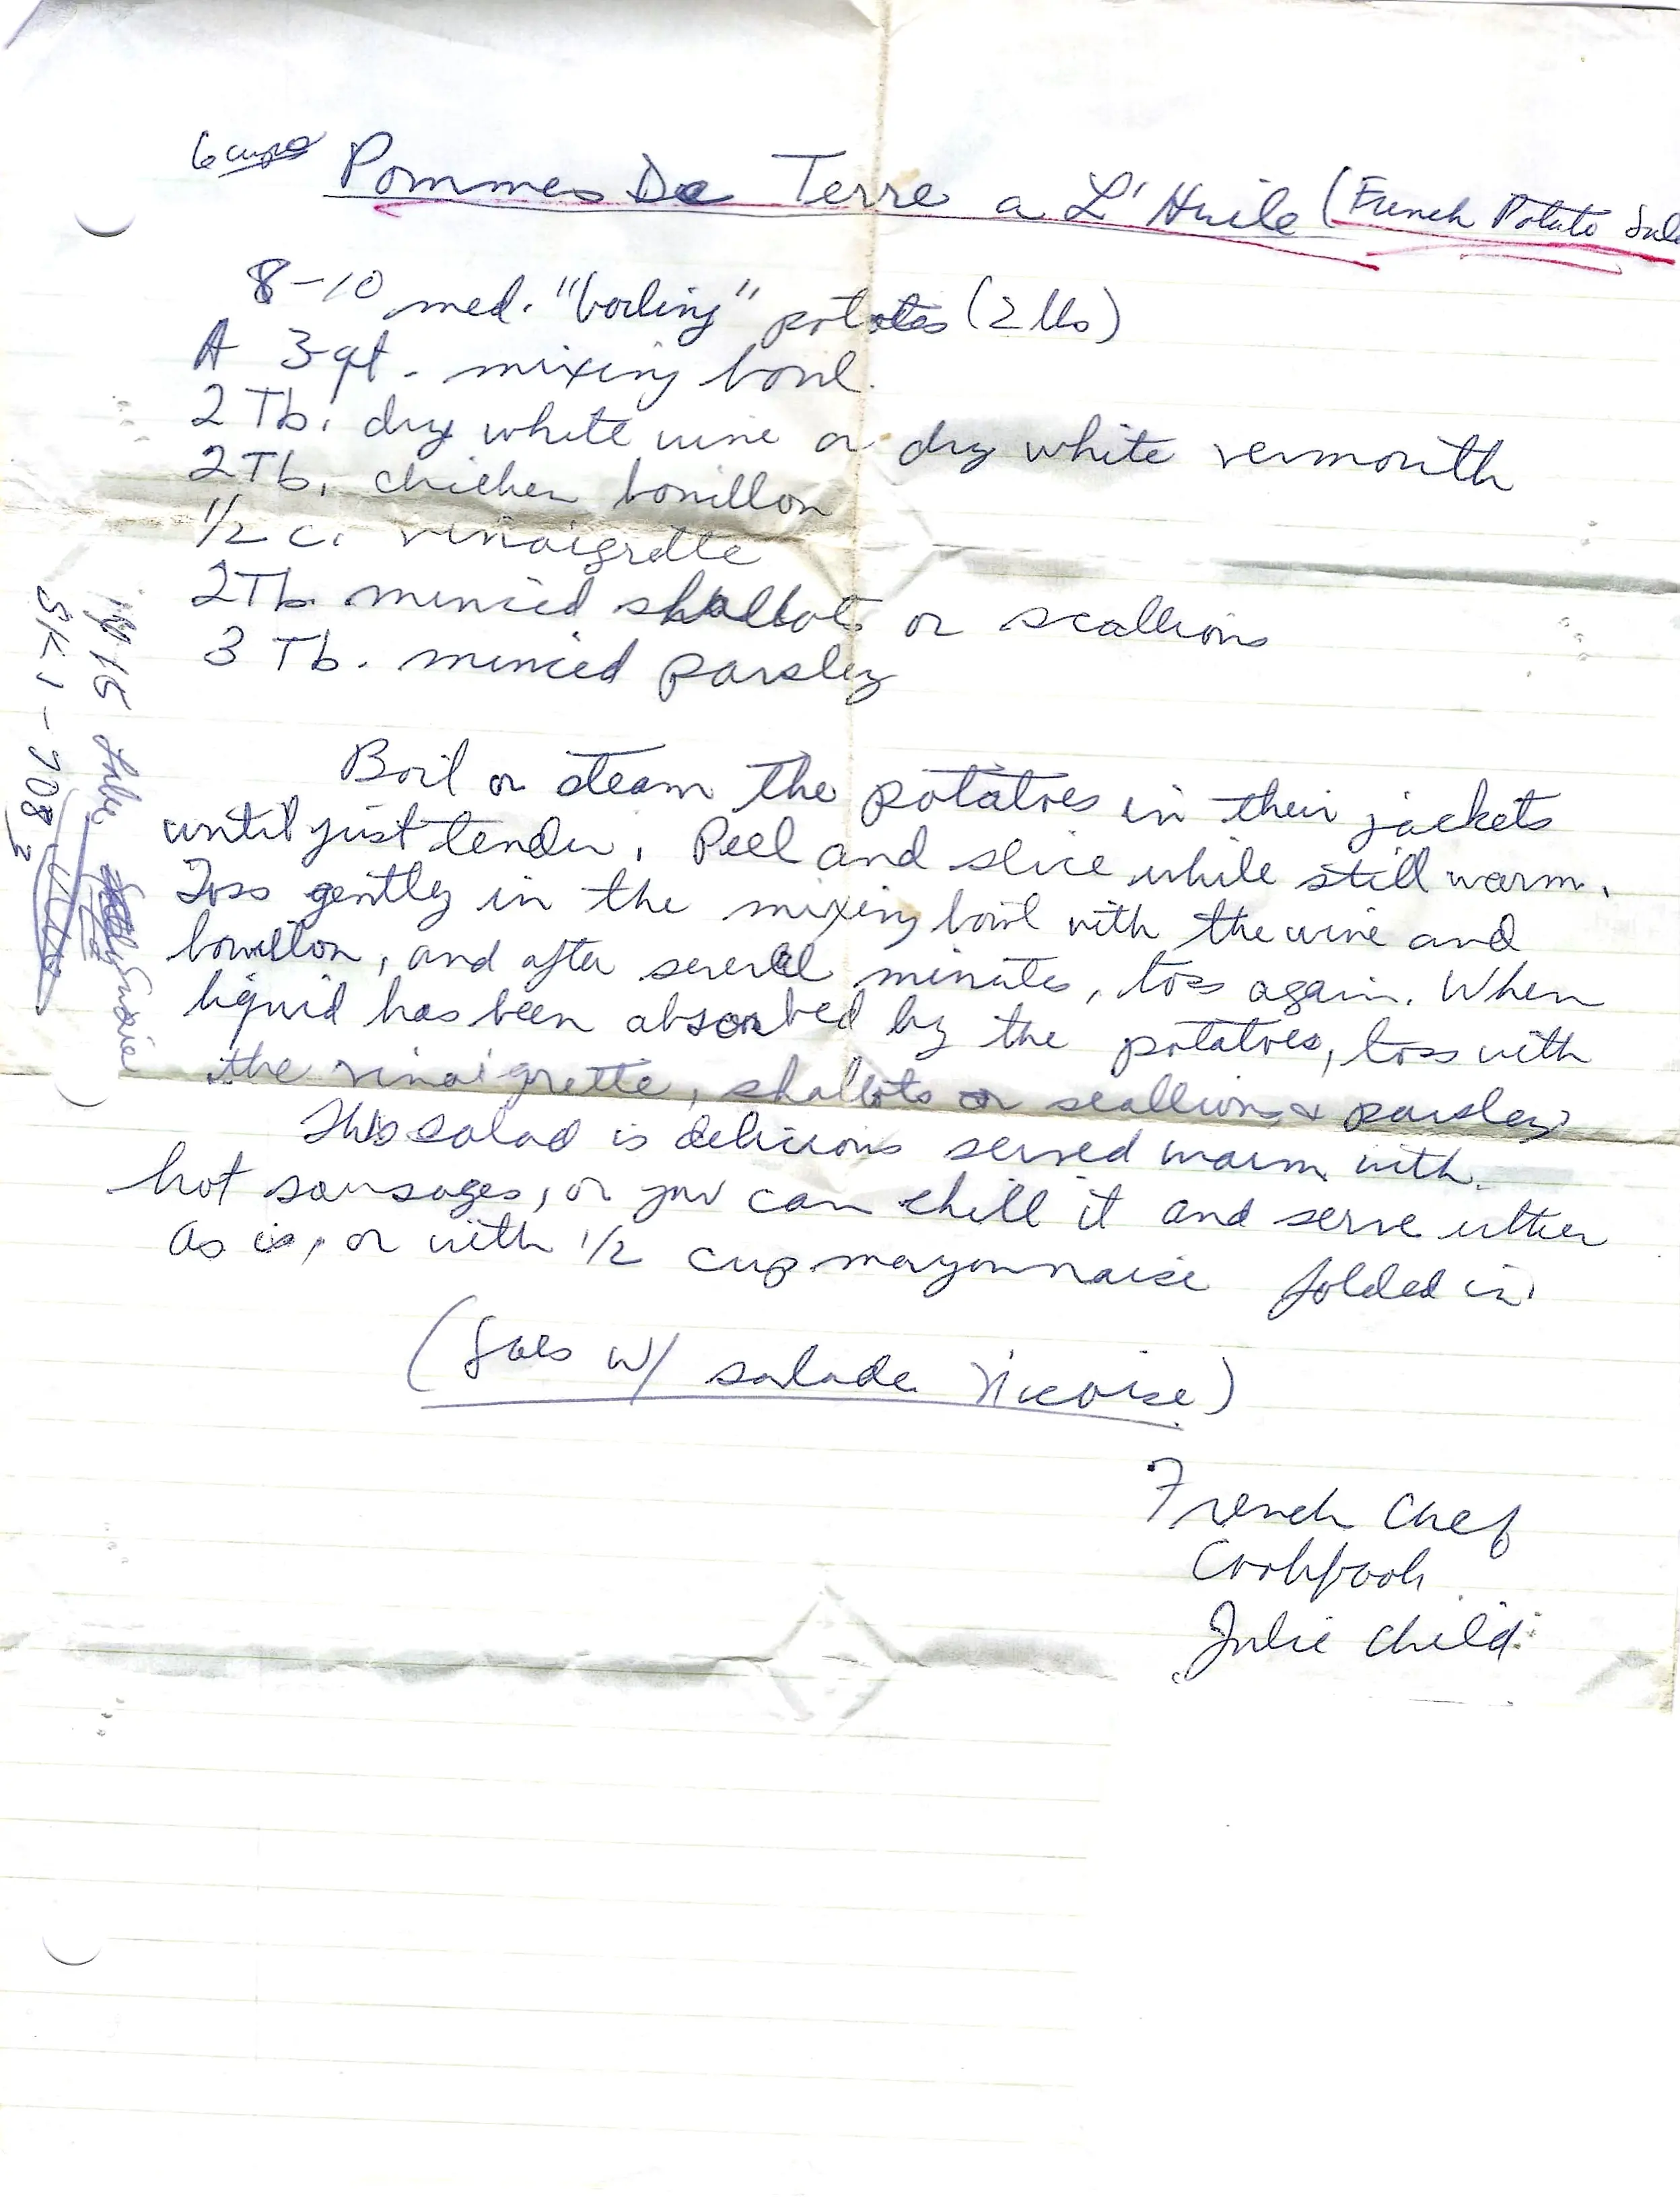 6 cups Pommes De Terre a L'Huile (French Potato Sala
8-10 med. "boiling" potatoes (2 lbs)
A 3-qt. mixing bowl.
2 Tb. dry white wine or dry white vermouth
2 Tb. chicken bouillon
1/2 c. vinaigrette
2 Tb. minced shallots or scallions
3 Tb. minced parsley
Boil or steam the potatoes in their jackets
until just tender. Peel and slice while still warm.
Toss gently in the mixing bowl with the wine and
bouillon, and after several minutes, toss again. When
liquid has been absorbed by the potatoes, toss with
the vinaigrette, shallots or scallions & parsley
This salad is delicious served warm with
hot sausages, or you can chill it and serve either
as is, or with 1/2 cup mayonnaise folded in
(Goes w/ salade Nicoise)
French Chef
Cookbook
Julie Child
15
Susie
SK1-708